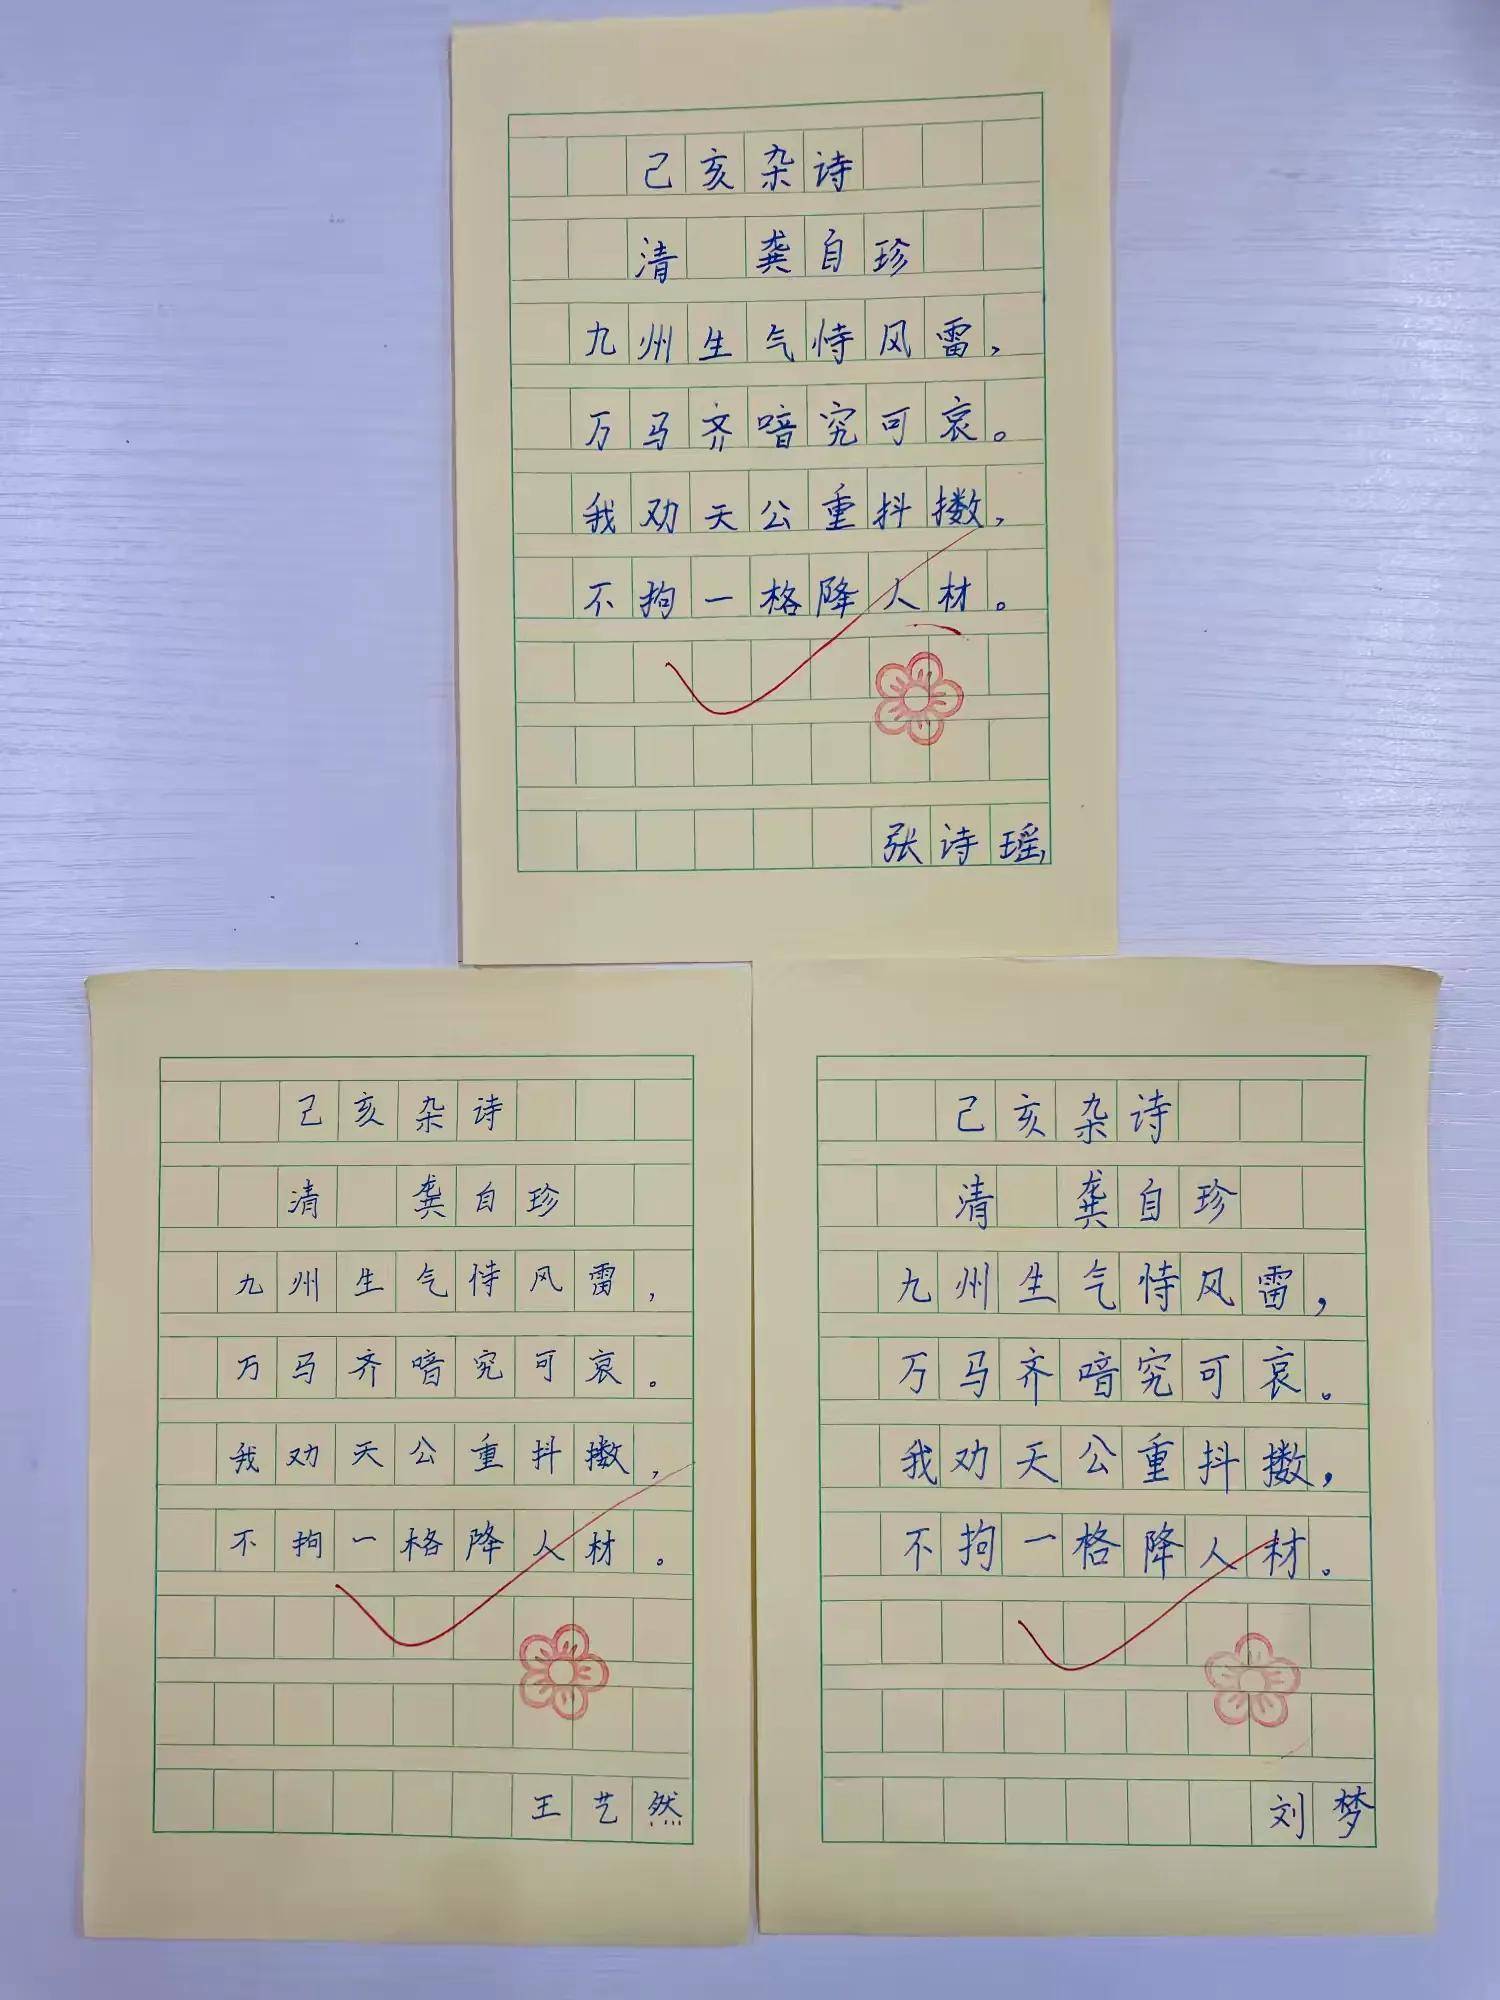 己亥杂诗
清 龚自珍
九州生气恃风雷，
万马齐喑究可哀。
我劝天公重抖擞，
不拘一格降人材。
张诗瑶
己亥杂诗
清 龚自珍
九州生气恃风雷，
万马齐喑究可哀。
我劝天公重抖擞，
不拘一格降人材。
王艺然
己亥杂诗
清 龚自珍
九州生气恃风雷，
万马齐喑究可哀。
我劝天公重抖擞，
不拘一格降人材。
刘梦